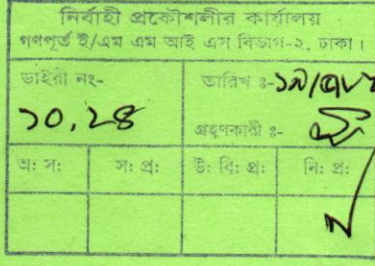 নির্বাহী প্রকৌশলীর কার্যালয়
গণপূর্ত ই/এম এম আই এস বিভাগ-২, ঢাকা।
ডাইরী নং- তারিখ ঃ-
১০,২৪ গ্রহণকারী ঃ-
অঃ সঃ সঃ প্রঃ উঃ বিঃ প্রঃ নিঃ প্রঃ